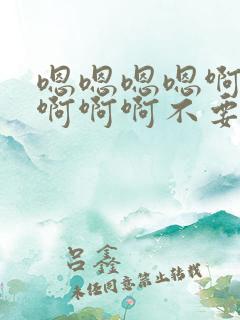 嗯嗯嗯嗯啊
啊啊啊不要
吕鑫
未经同意禁止转载